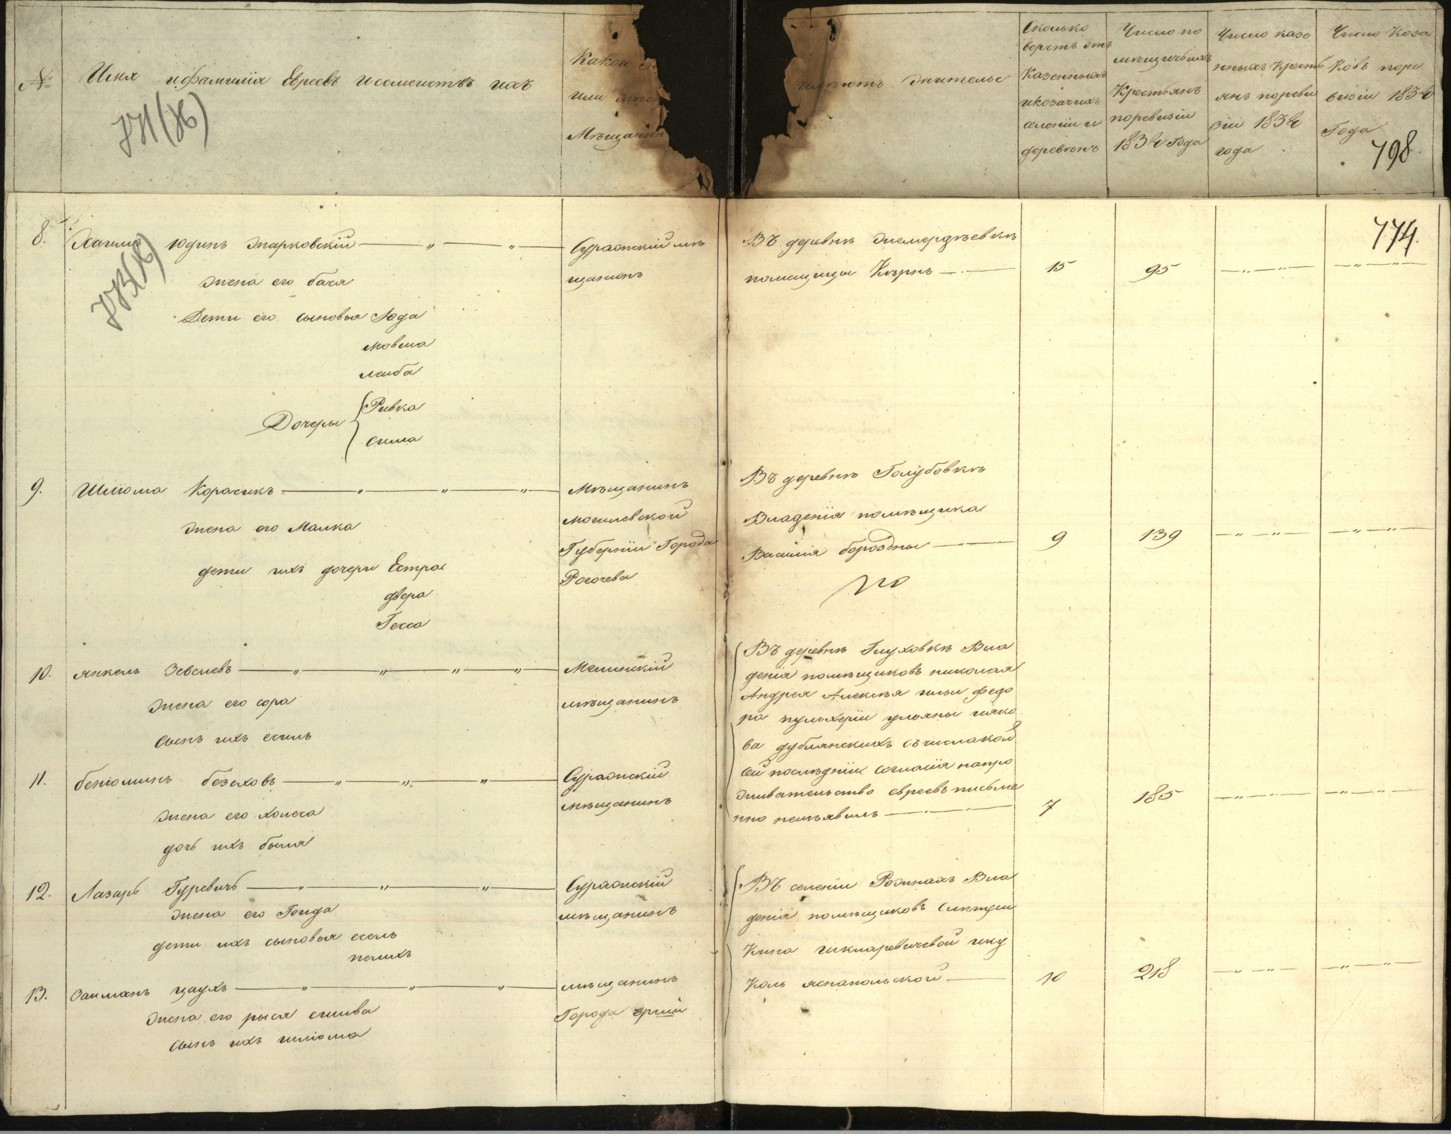 №
Имя и фамилія Евреевъ и семействъ ихъ
771 (Ж)
Какой
или
Мѣщанин
имѣютъ жительс
Сколько верстъ отъ
Казенныхъ
и козачихъ
селеній и
деревень
Число по
мѣщичьихъ
Крестьянъ
по ревизіи
1834 Года
Число казе
нныхъ Крестьъ
янъ по реви
зіи 1834
года
Число Коза
ковъ по ре
визіи 1834
Года
798.
774.
8. Хаимъ Юдинъ Жарковскій — " — " —
773 (Ж)
жена его бася
Дети его сыновья Іода
мовша
лейба
Дочеры Ривка
сима
Суражскій мѣ
щанинъ
Въ деревнѣ
помещицы — 15 95 — " — " — — " — " —
9. Шліома Корасикъ — " — " — " —
жена его Малка
дети ихъ дочери Естра
двера
Гесса
Мѣщанинъ
могилевской
Губерніи Города
Рогачева
Въ деревнѣ Голубовкѣ
Владенія помѣщика
Василія бороздны — 9 139 — " — " — — " — " —
10. янкель Зевелевъ — " — " — " — " —
жена его сора
сынъ ихъ есиль
Мглинскій
мѣщанинъ
Въ деревнѣ Глуховкѣ Вла
денія помѣщиковъ николая
Андрея Алексѣя ильи федо
ра пульхеріи ульяны и яко
ва дублянскихъ съ числа коей
последніи согласія на про
живательство евреевъ письме
нно неизъявилъ — 7 185 — " — " — — " — " —
11. беніоминъ безеховъ — " — " — " —
жена его холоса
дочъ ихъ быля
Суражскій
мѣщанинъ
12. Лазаръ Гуревичъ — " — " — " —
жена его Гинда
дети ихъ сыновья есель
Суражскій
мѣщанинъ
Въ селеніи Рожнахъ Вла
денія помѣщиковъ
— 10 218 — " — " — — " — " —
13. Займанъ цаухъ — " — " — " —
жена его рыся
сынъ ихъ шліома
мѣщанинъ
Города